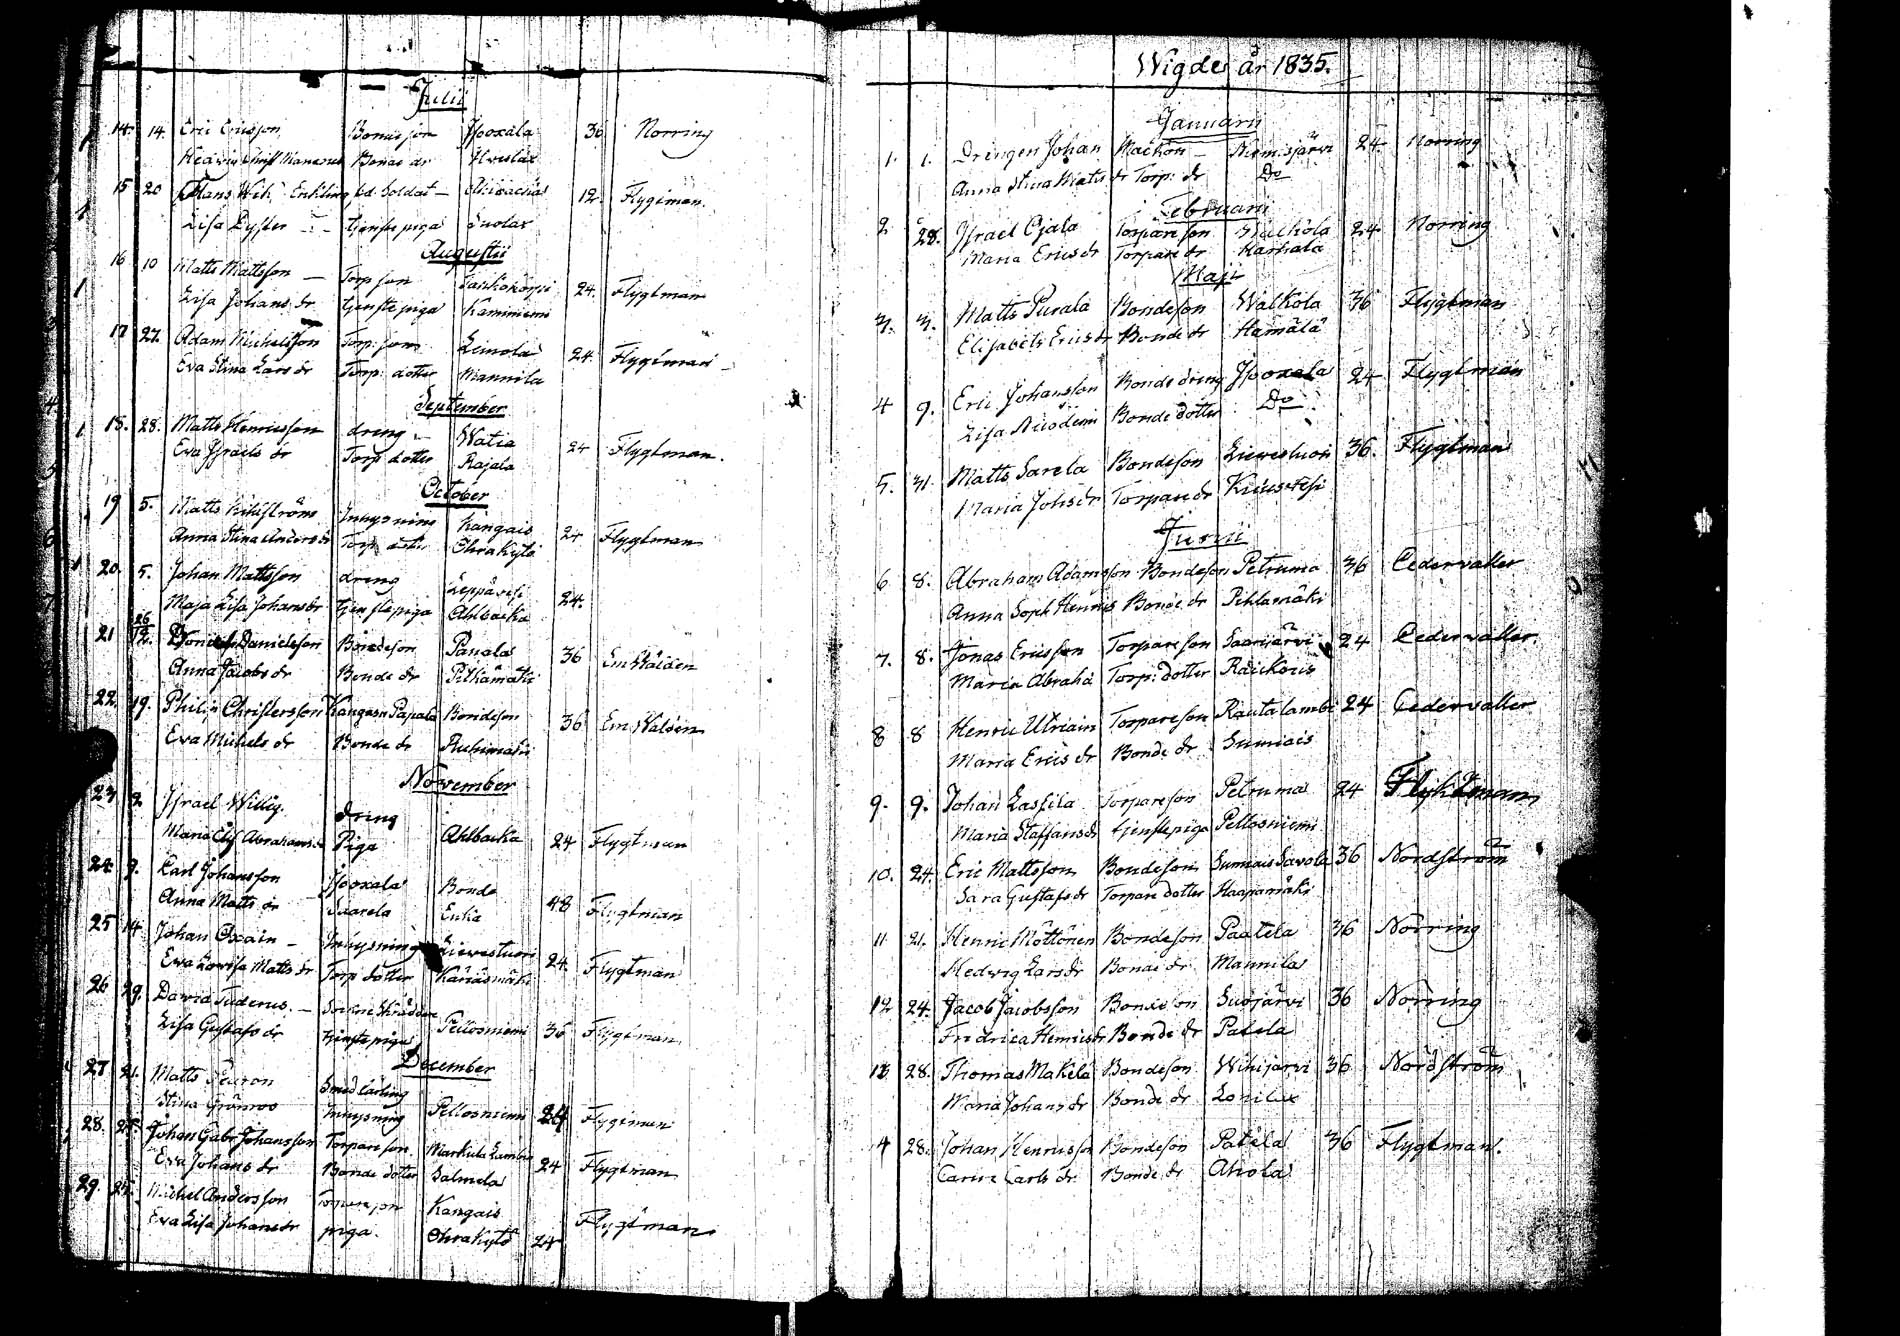 Julii
14. 14. Eric Ericsson Bondeson Isoxala 36 Norring
Hedvig Bonde dr
15 20 Frans Wilh Enkling Soldat — 12. Flygtman.
Lisa Dyster tjenstepiga Suolax
Augustii
16 10 Matts Mattsson — Torp son 24. Flygtman
Lisa Johans dr tjenstepiga Kaminiemi
17 27. Adam Michelsson Torp: son 24. Flygtman
Eva Stina Lars dr Torp: dotter Mannila
September
18. 28. Matts Henricsson dreng Watia 24 Flygtman.
Eva Israels dr Torp dotter Rajala
October
19 5. Matts Inhysning Kangais 24 Flygtman
Anna Stina Anders dr Torp dotter Ohrakytö
20. 5. Johan Mattsson dreng Leppävesi 24.
Maja Lisa Johans dr tjenstepiga Ahlbacka
21 26/12. Danielsson Bondeson Panala 36 Em Walden
Anna Jacobs dr Bonde dr Pitkämäki
22. 19. Philip Christersson Kangasn Papala Bondeson 36 Em Walden
Eva Michels dr Bonde dr Ruhimäki
November
23 2 Israel Willig. dreng
Maria Elis Abrahams dr Piga Ahlbacka 24 Flygtman
24. 9. Carl Johansson Isoxala Bonde
Anna Matts dr Saarela Enka 48 Flygtman
25 14 Johan Oxain — Inhysning Lievestuori 24. Flygtman
Eva Lovisa Matts dr Torp dotter Känäsmäki
26 29. David Tuderus. — Sockne Skräddare
Lisa Gustafs dr tjenstepiga Pellosniemi 36 Flygtman
December
27 21. Matts Pecuron Smed Lärling
Stina Grönroos Inhysning Pellosniemi 24 Flygtman
28. 25. Johan Gabr Johansson Torpareson Markula
Eva Johans dr Bonde dotter Salmela 24 Flygtman
29. 25. Michel Andersson Torpareson Kangais
Eva Lisa Johans dr piga. Ohrakytö 24 Flygtman
Wigde år 1835.
Januarii
1. 1. Drengen Johan Mackon — Niemisjärvi 24 Norring
Anna Stina Matts dr Torp: dr Do
Februarii
2 28. Israel Ojala Torpareson Walkola 24 Norring
Maria Erics dr Torpare dr Harkala
Maji
3. 3. Matts Purala Bondeson Walkola 36 Flygtman
Elisabeth Erics dr Bonde dr Hämälä
4 9. Eric Johansson Bonde dreng Isoxala 24 Flygtman
Lisa Nicodemi Bonde dotter Do
5. 31. Matts Sarela Bondeson Lievestuori 36. Flygtman
Maria Johs dr Torpare dr Kuusvesi
Junii
6 8. Abraham Adamsson Bondeson Petruma 36 Cedervaller
Anna Soph Henrics Bonde dr Pihlamäki
7. 8. Jonas Ericsson Torpareson Saarijärvi 24 Cedervaller
Maria Abraha Torp: dotter Raickois
8 8 Henric Utriain Torpareson Rautalambi 24 Cedervaller
Maria Erics dr Bonde dr Sumiais
9. 9. Johan Lassila Torpareson Petruma 24 Flyktman
Maria Staffans dr tjenstepiga Pellosniemi
10. 24. Eric Mattsson Bondeson Sumiais Savola 36 Nordström
Sara Gustafs dr Torpare dotter Haapamäki
11 21. Henric Möttönen Bondeson Paatela 36 Norring
Hedwig Lars dr Bonde dr Mannila
12 24. Jacob Jacobsson Bondeson Suojärvi 36 Norring
Fredrica Henrics dr Bonde dr Patela
13 28. Thomas Makela Bondeson Wihijarvi 36 Nordström
Maria Johans dr Bonde dr
14 28. Johan Henricsson Bondeson Patela 36 Flygtman.
Carin Carls dr Bonde dr Ahola